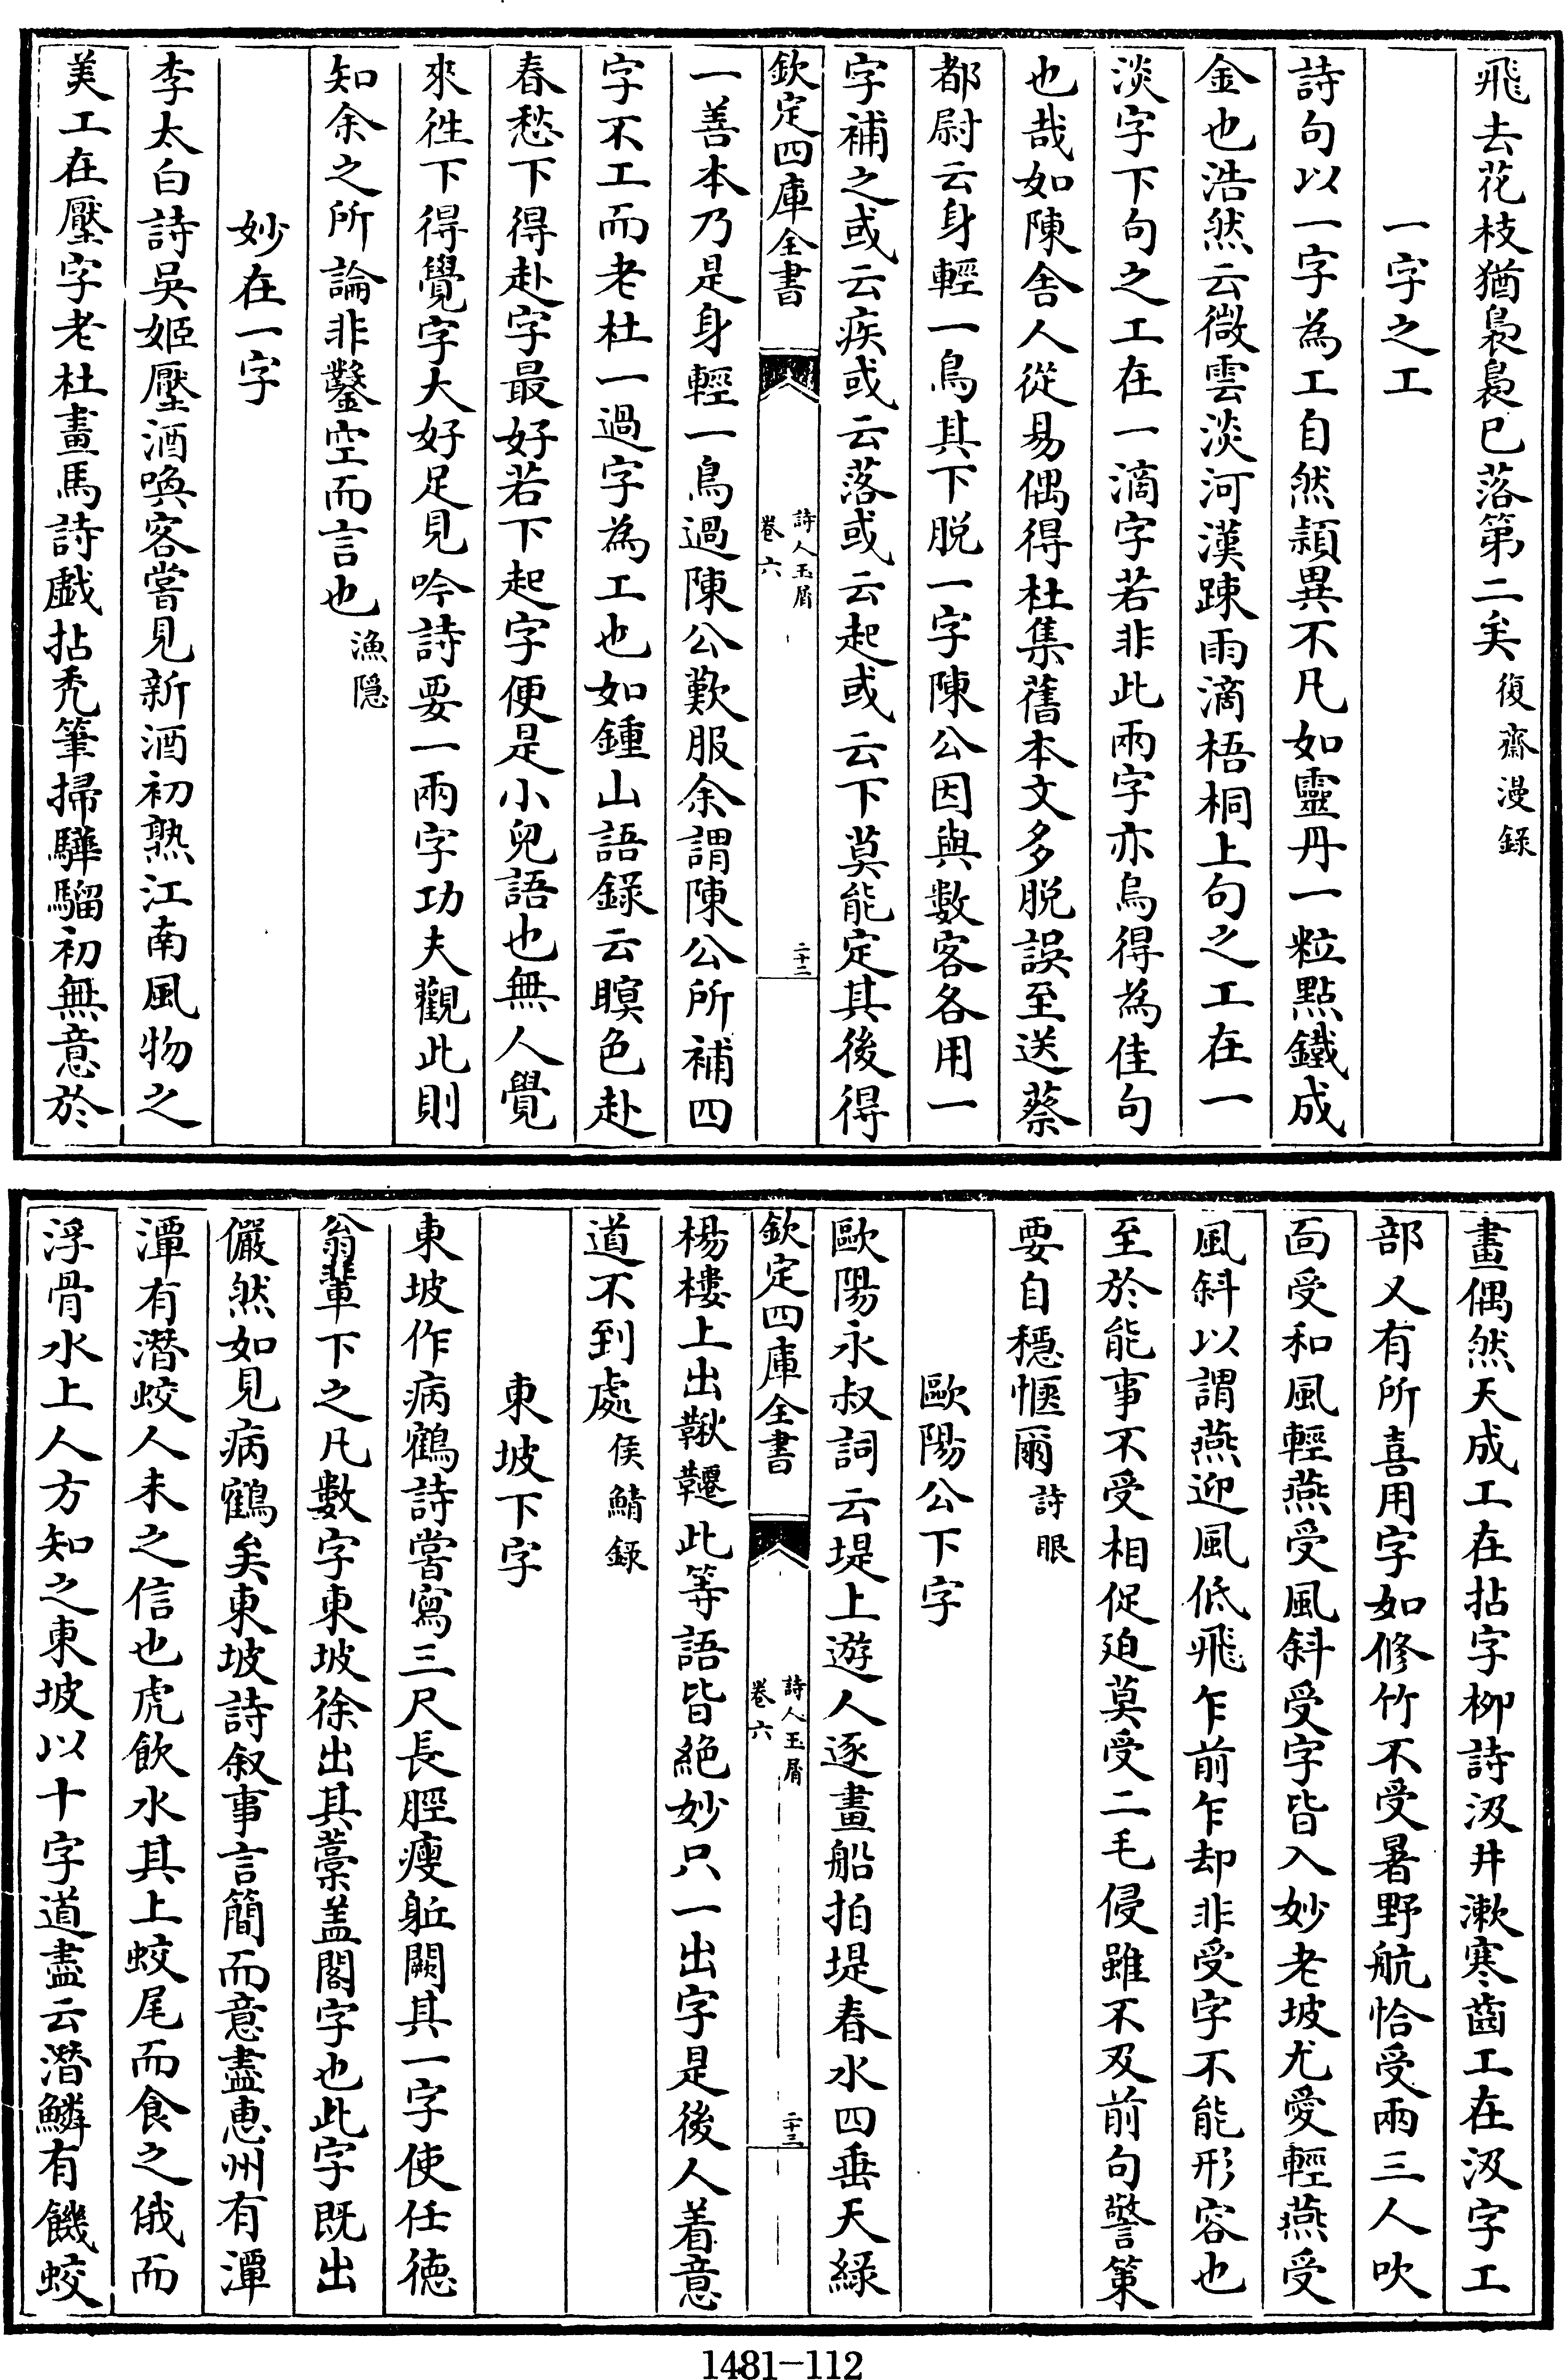 飛去花枝猶裊裊已落第二矣復齋漫錄
一字之工
詩句以一字為工自然頴異不凡如靈丹一粒點鐵成
金也浩然云微雲淡河漢踈雨滴梧桐上句之工在一
淡字下句之工在一滴字若非此兩字亦烏得為佳句
也哉如陳舍人從易偶得杜集舊本文多脱誤至送蔡
都尉云身輕一鳥其下脱一字陳公因與數客各用一
字補之或云疾或云落或云起或云下莫能定其後得
欽定四庫全書
詩人玉屑
卷六
二十二
一善本乃是身輕一鳥過陳公歎服余謂陳公所補四
字不工而老杜一過字為工也如鍾山語錄云瞑色赴
春愁下得赴字最好若下起字便是小兒語也無人覺
來徃下得覺字大好足見吟詩要一兩字功夫觀此則
知余之所論非鑿空而言也漁隱
妙在一字
李太白詩吳姬壓酒喚客嘗見新酒初熟江南風物之
美工在壓字老杜畫馬詩戲拈秃筆掃驊騮初無意於
畫偶然天成工在拈字柳詩汲井漱寒齒工在汲字工
部又有所喜用字如修竹不受暑野航恰受兩三人吹
面受和風輕燕受風斜受字皆入妙老坡尤愛輕燕受
風斜以謂燕迎風低飛乍前乍却非受字不能形容也
至於能事不受相促廹莫受二毛侵雖不及前句警策
要自穩愜爾詩眼
歐陽公下字
歐陽永叔詞云堤上遊人逐畫船拍堤春水四垂天緑
欽定四庫全書
詩人玉屑
卷六
二十三
楊樓上出鞦韆此等語皆絶妙只一出字是後人着意
道不到處侯鯖錄
東坡下字
東坡作病鶴詩嘗寫三尺長脛瘦軀闕其一字使任徳
翁輩下之凡數字東坡徐出其藁盖閣字也此字既出
儼然如見病鶴矣東坡詩叙事言簡而意盡惠州有潭
潭有潛蛟人未之信也虎飲水其上蛟尾而食之俄而
浮骨水上人方知之東坡以十字道盡云潛鱗有饑蛟
1481-112